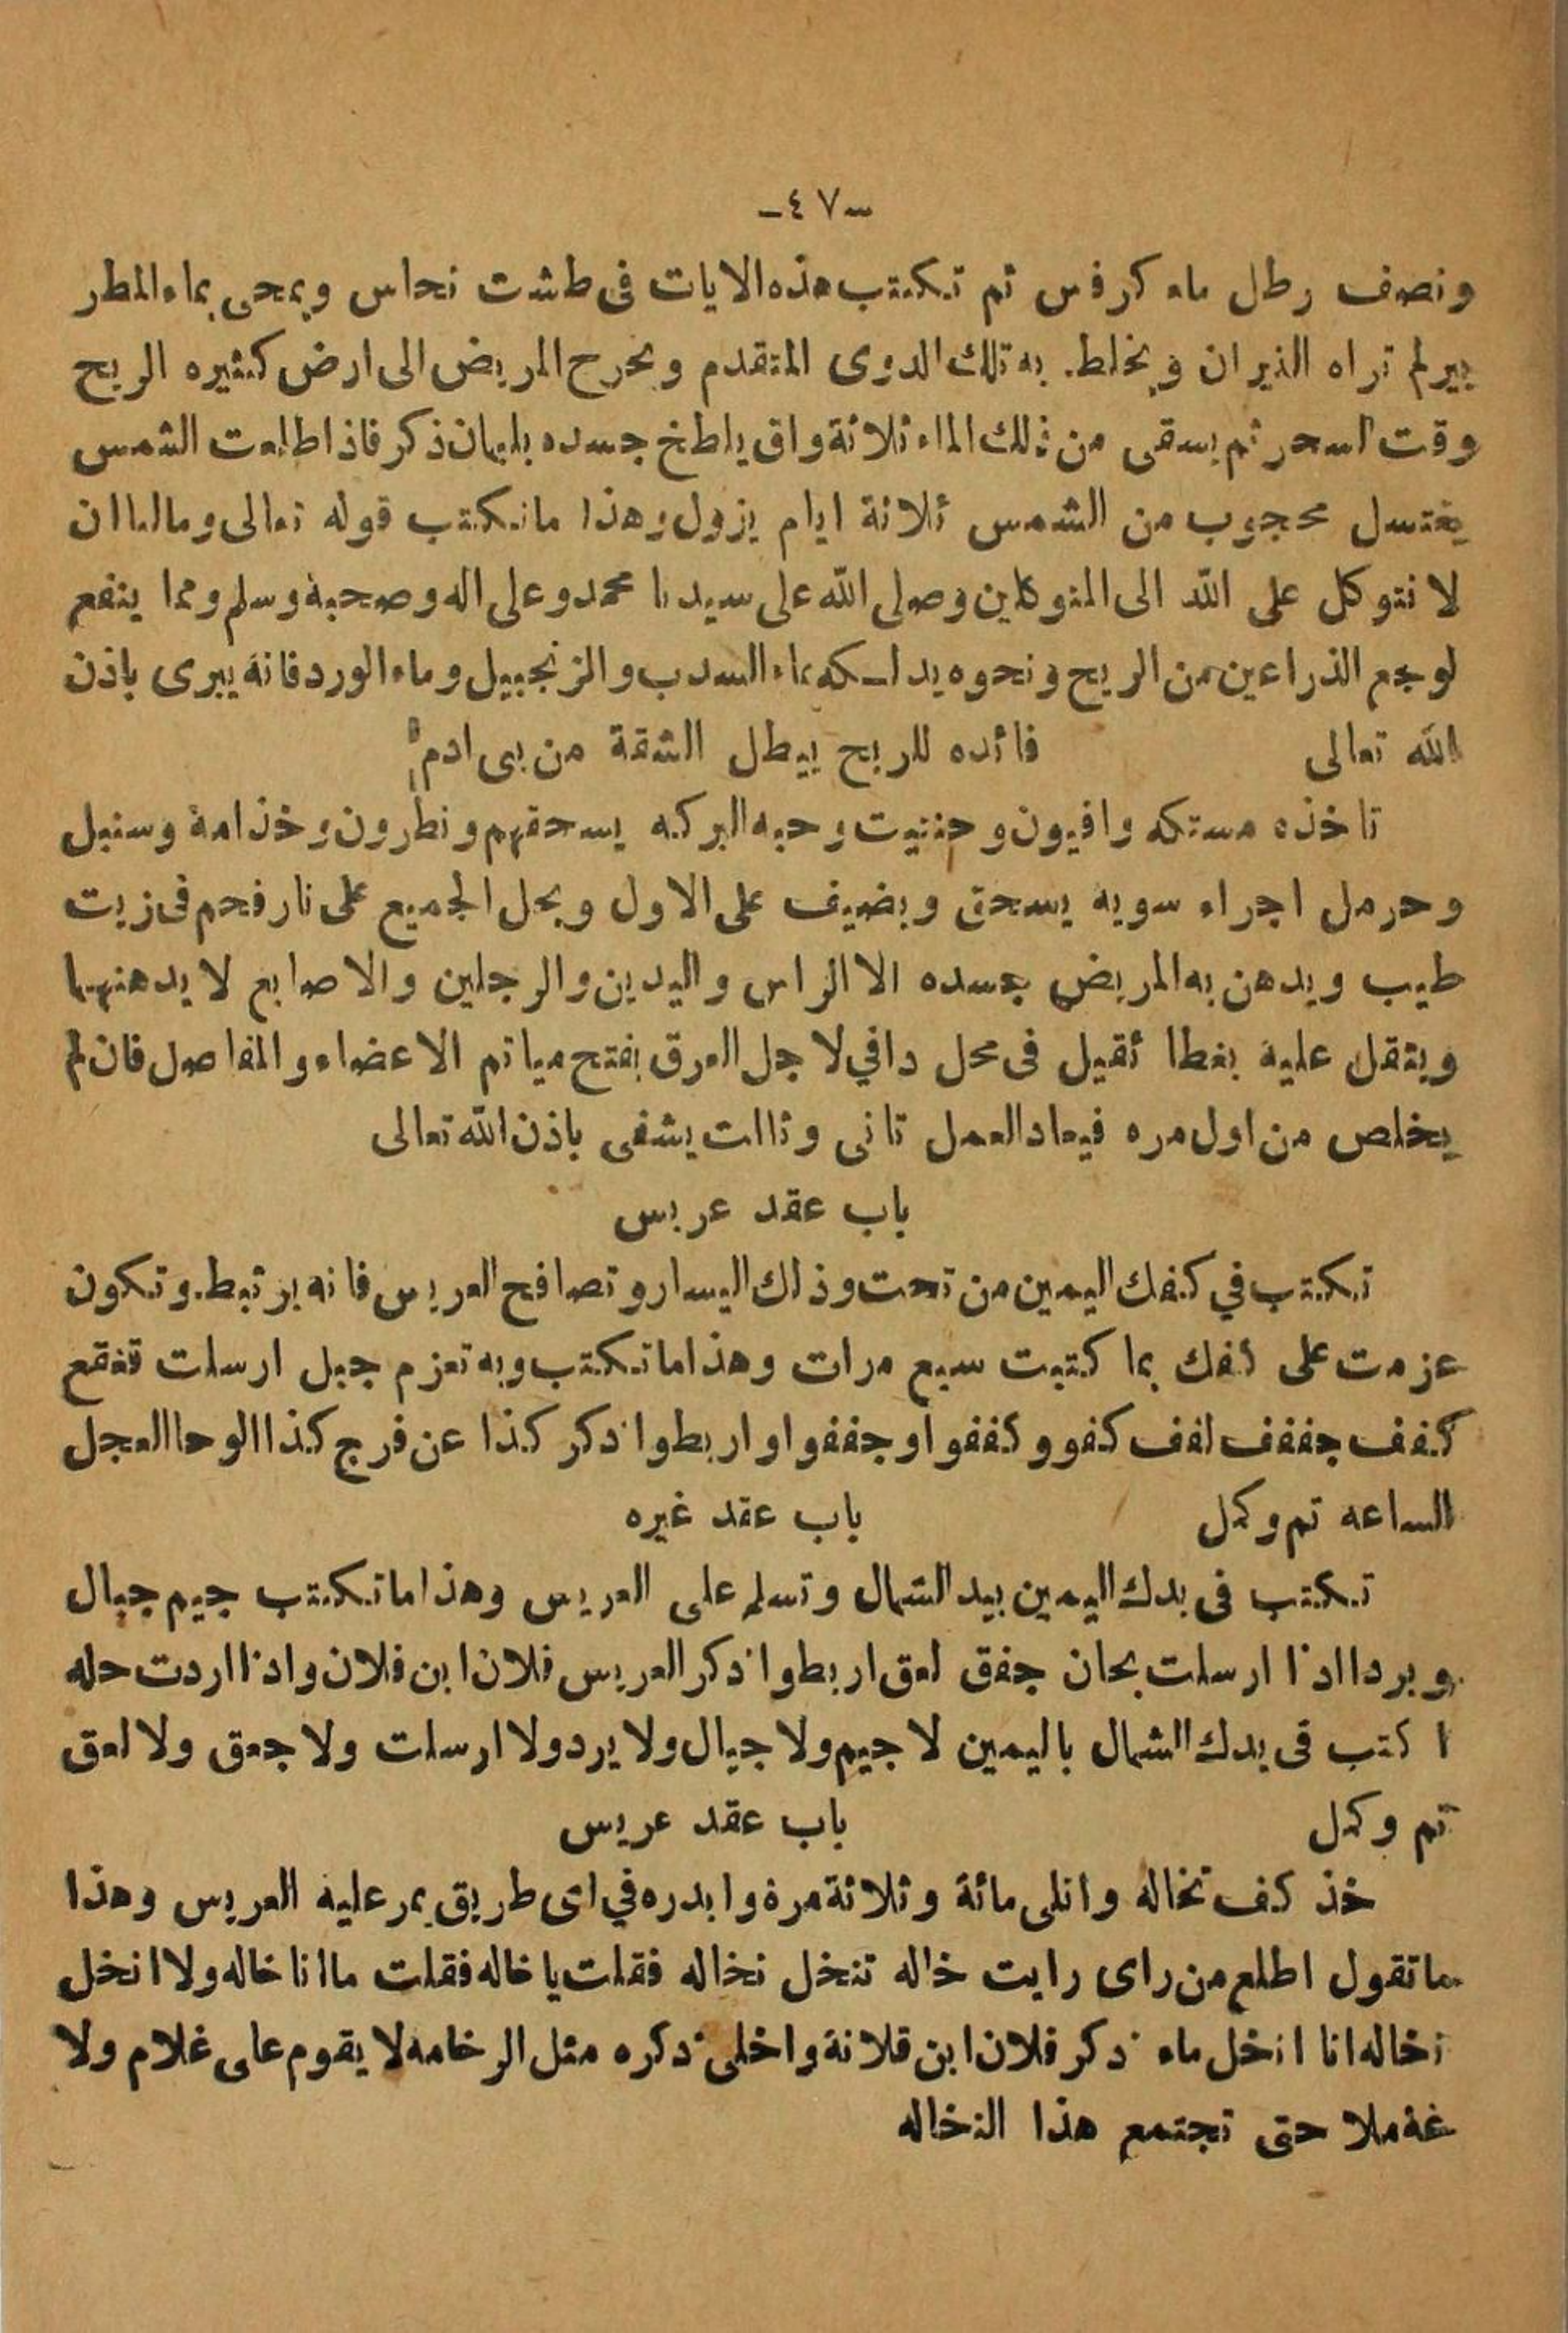 -٤٧-
ونصف رطل ماء كرفس ثم تكتب هذه الايات فى طشت نحاس ويمحى بماء المطر
بير لم تراه النيران ويخلط به تلك الدوى المتقدم ويخرح المريض الى ارض كثيره الريح
وقت السحر ثم يسقى من ذلك الماء ثلاثة واق يلطخ جسده بلبان ذكر فاذا طلعت الشمس
يغتسل محجوب من الشمس ثلاثة ايام يزول وهذا ما تكتب قوله تعالى وما لنا ان
لا نتوكل على الله الى المتوكلين وصلى الله على سيدنا محمد وعلى اله وصحبة وسلم ومما ينفع
لوجع الذراعين من الريح ونحوه يدلكه بماء السدب والزنجبيل وماء الورد فانة يبرى باذن
الله تعالى فائده للريح يبطل الشقة من بى ادم
تاخذه مستكه وافيون وحنتيت وحبه البركه يسحقهم ونطرون وخذامة وسنبل
وحرمل اجراء سويه يسحق ويضيف على الاول ويحل الجميع على نار فحم فى زيت
طيب ويدهن به المريض جسده الا الراس واليدين والرجلين والاصابع لا يدهنهما
ويثقل عليه بغطا ثقيل فى محل دافي لاجل العرق بفتح مياتم الاعضاء والمفاصل فان لم
يخلص من اول مره فيعاد العمل تانى وثالت يشفى باذن الله تعالى
باب عقد عريس
تكتب في كفك اليمين من تحت وذلك اليسار وتصافح العريس فانه يرتبط وتكون
عزمت على كفك بما كتبت سبع مرات وهذا ما تكتب وبه تعزم جبل ارسلت قفقع
كفف جففف لفف كفو وكففو او جففوا واربطوا ذكر كذا عن فرج كذا الوحا العجل
الساعه تم وكمل باب عقد غيره
تكتب فى يدك اليمين بيد الشمال وتسلم على العريس وهذا ما تكتب جيم جبال
وبردا اذا ارسلت بحان جفق لعق اربطوا ذكر العريس فلان ابن فلان واذا اردت حله
اكتب فى يدك الشمال باليمين لا جيم ولا جبال ولا يرد ولا ارسلت ولا جعق ولا لعق
تم وكمل باب عقد عريس
خذ كف نخاله واتلى مائة وثلاثة مرة وابدره في اى طريق يمر عليه العريس وهذا
ما تقول اطلع من راى رايت خاله تنخل نخاله فقلت يا خاله فقلت ما انا خاله ولا انخل
نخاله انا انخل ماء ذكر فلان ابن فلانة واخلى ذكره مثل الرخامه لا يقوم على غلام ولا
حتى تجتمع هذا النخاله